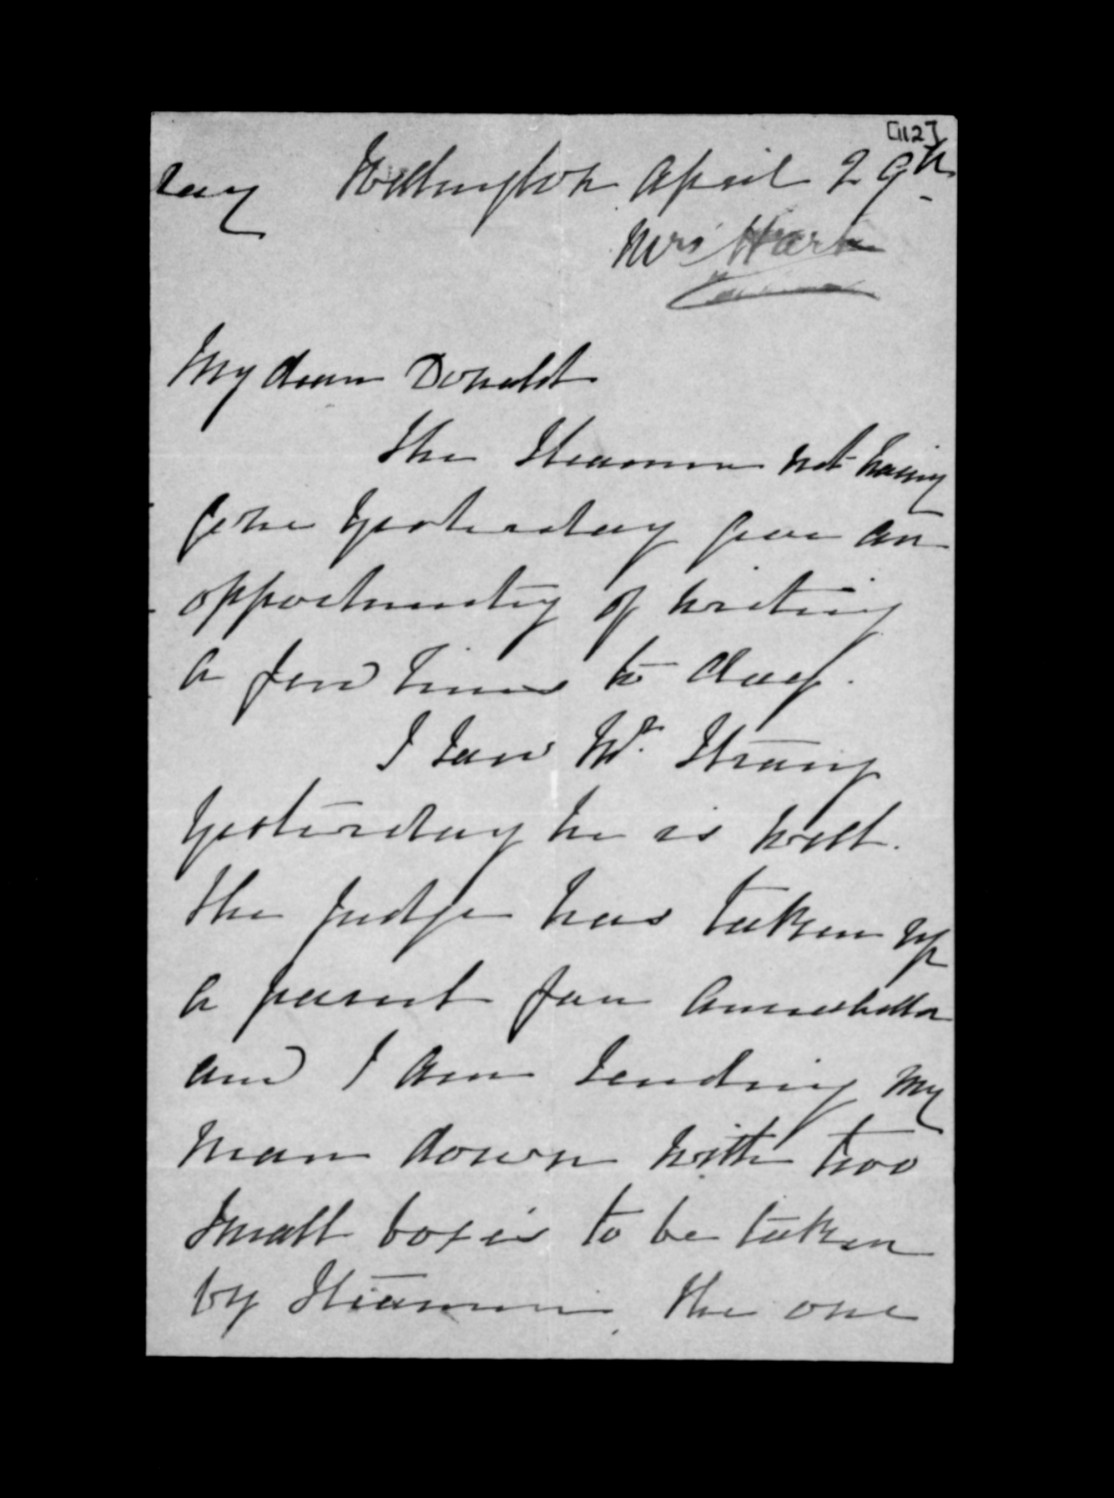 [112]
Wellington April 29th
Mrs Hart
My dear Donald
The Steamer not having
gone yesterday gives an
opportunity of writing
a few lines to day.
I saw Mr. Strang
yesterday he is well.
The Judge has taken up
a parcel for Annabella
and I am sending my
man down with two
small boxes to be taken
by Steamer. The one